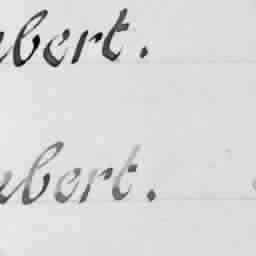 ubert.
ubert.